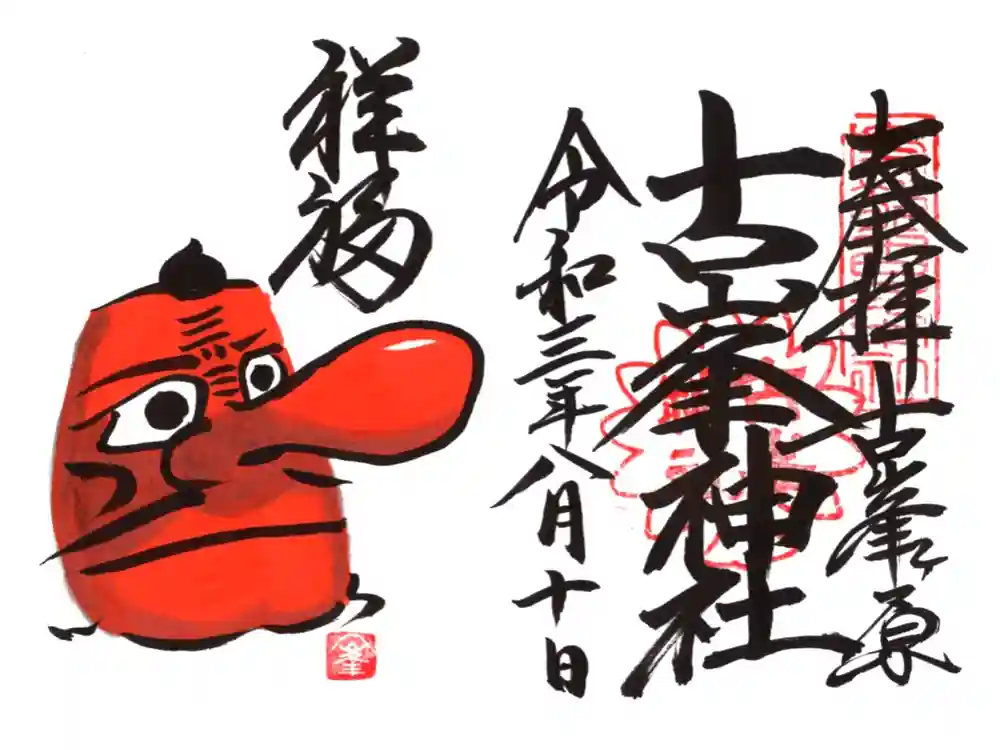 奉拝 古峯原
古峯神社
令和三年八月十日
祥福
峯